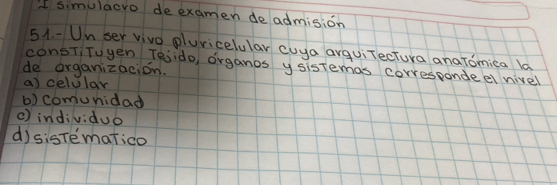 I simulacro de examen de admisión
51.- Un ser vivo pluricelular cuya arquitectura anatómica la
constituyen Tejido, órganos y sistemas corresponde el nivel
de organización.
a) celular
b) comunidad
c) individuo
d) sistématico